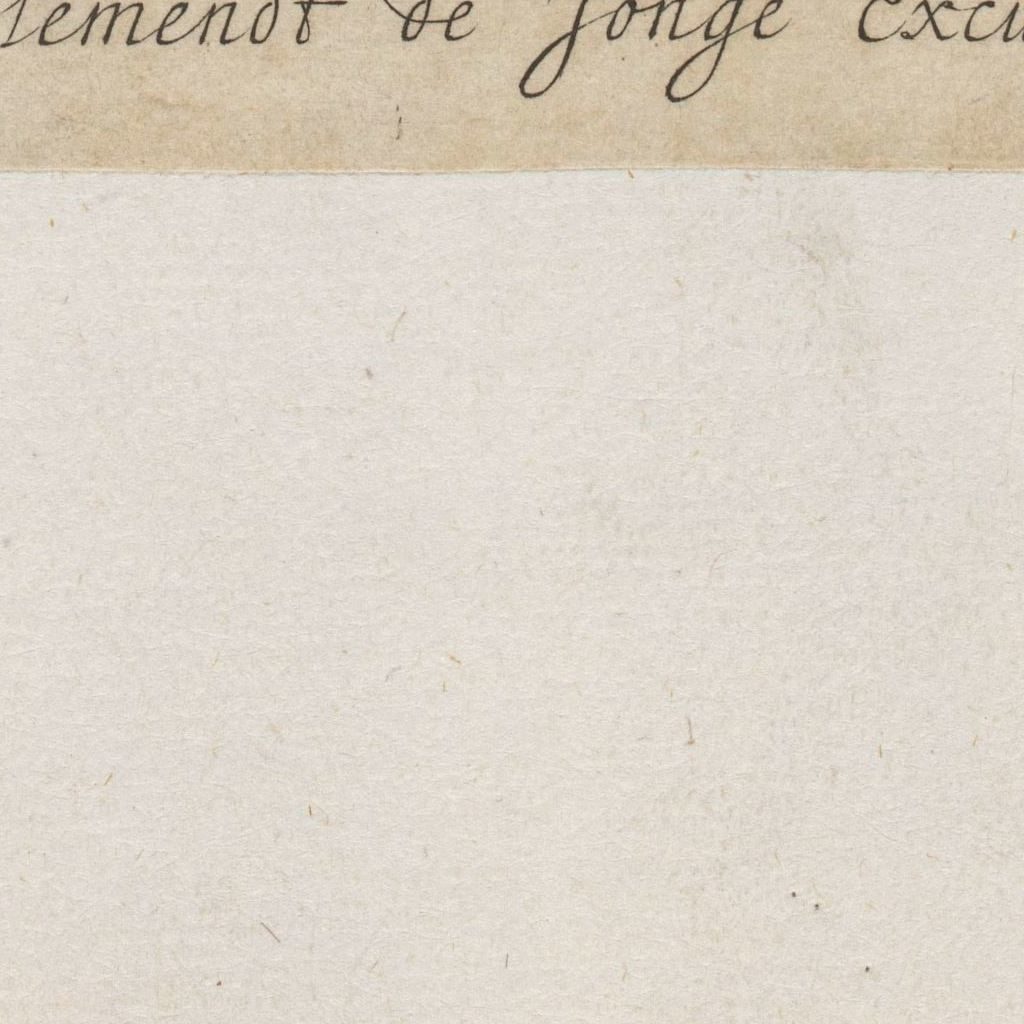 lemendt de Jonge excu